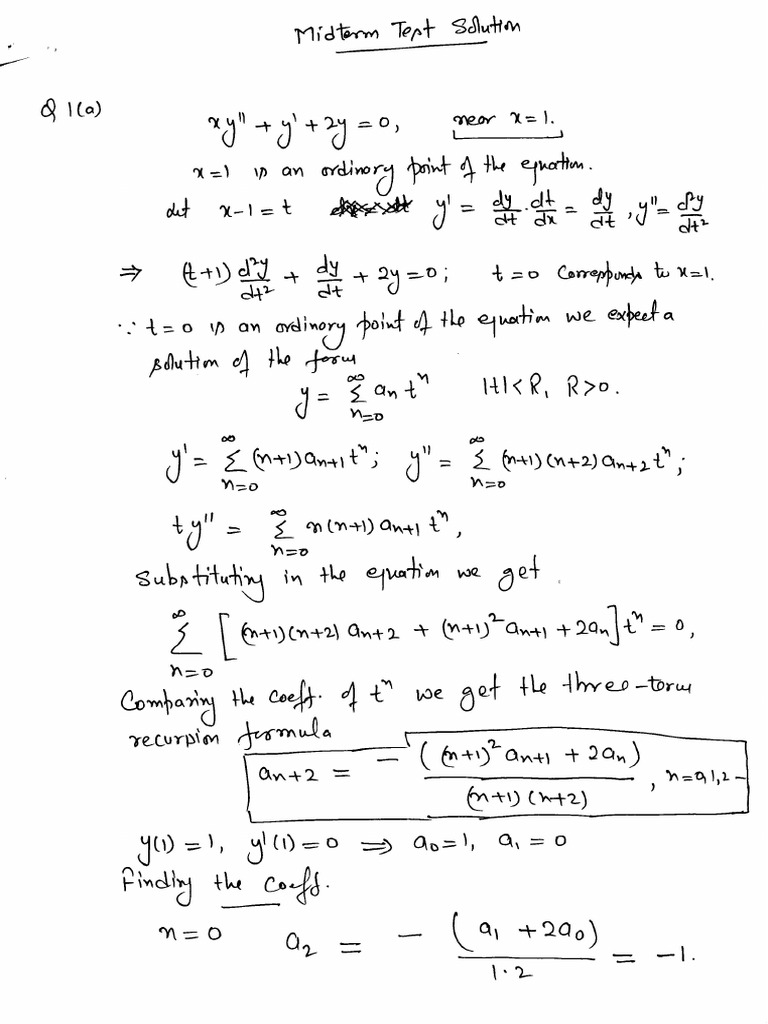 Midterm Test Solution
Q 1(a)
xy'' + y' + 2y = 0, near x = 1.
x=1 is an ordinary point of the equation.
Let x-1 = t y' = dy/dt · dt/dx = dy/dt , y'' = d²y/dt²
⇒ (t+1) d²y/dt² + dy/dt + 2y = 0; t = 0 corresponds to x=1.
∵ t = 0 is an ordinary point of the equation we expect a
solution of the form
y = ∑_{n=0}^{∞} a_n t^n |t| < R, R > 0.
y' = ∑_{n=0}^{∞} (n+1) a_{n+1} t^n; y'' = ∑_{n=0}^{∞} (n+1)(n+2) a_{n+2} t^n;
t y'' = ∑_{n=0}^{∞} n(n+1) a_{n+1} t^n,
Substituting in the equation we get
∑_{n=0}^{∞} [(n+1)(n+2) a_{n+2} + (n+1)² a_{n+1} + 2a_n] t^n = 0,
Comparing the coeff. of t^n we get the three-term
recursion formula
a_{n+2} = - ((n+1)² a_{n+1} + 2a_n) / (n+1)(n+2) , n=0,1,2-
y(1) = 1, y'(1) = 0 ⇒ a_0 = 1, a_1 = 0
Finding the coeff.
n = 0 a_2 = - (a_1 + 2a_0) / 1·2 = -1.